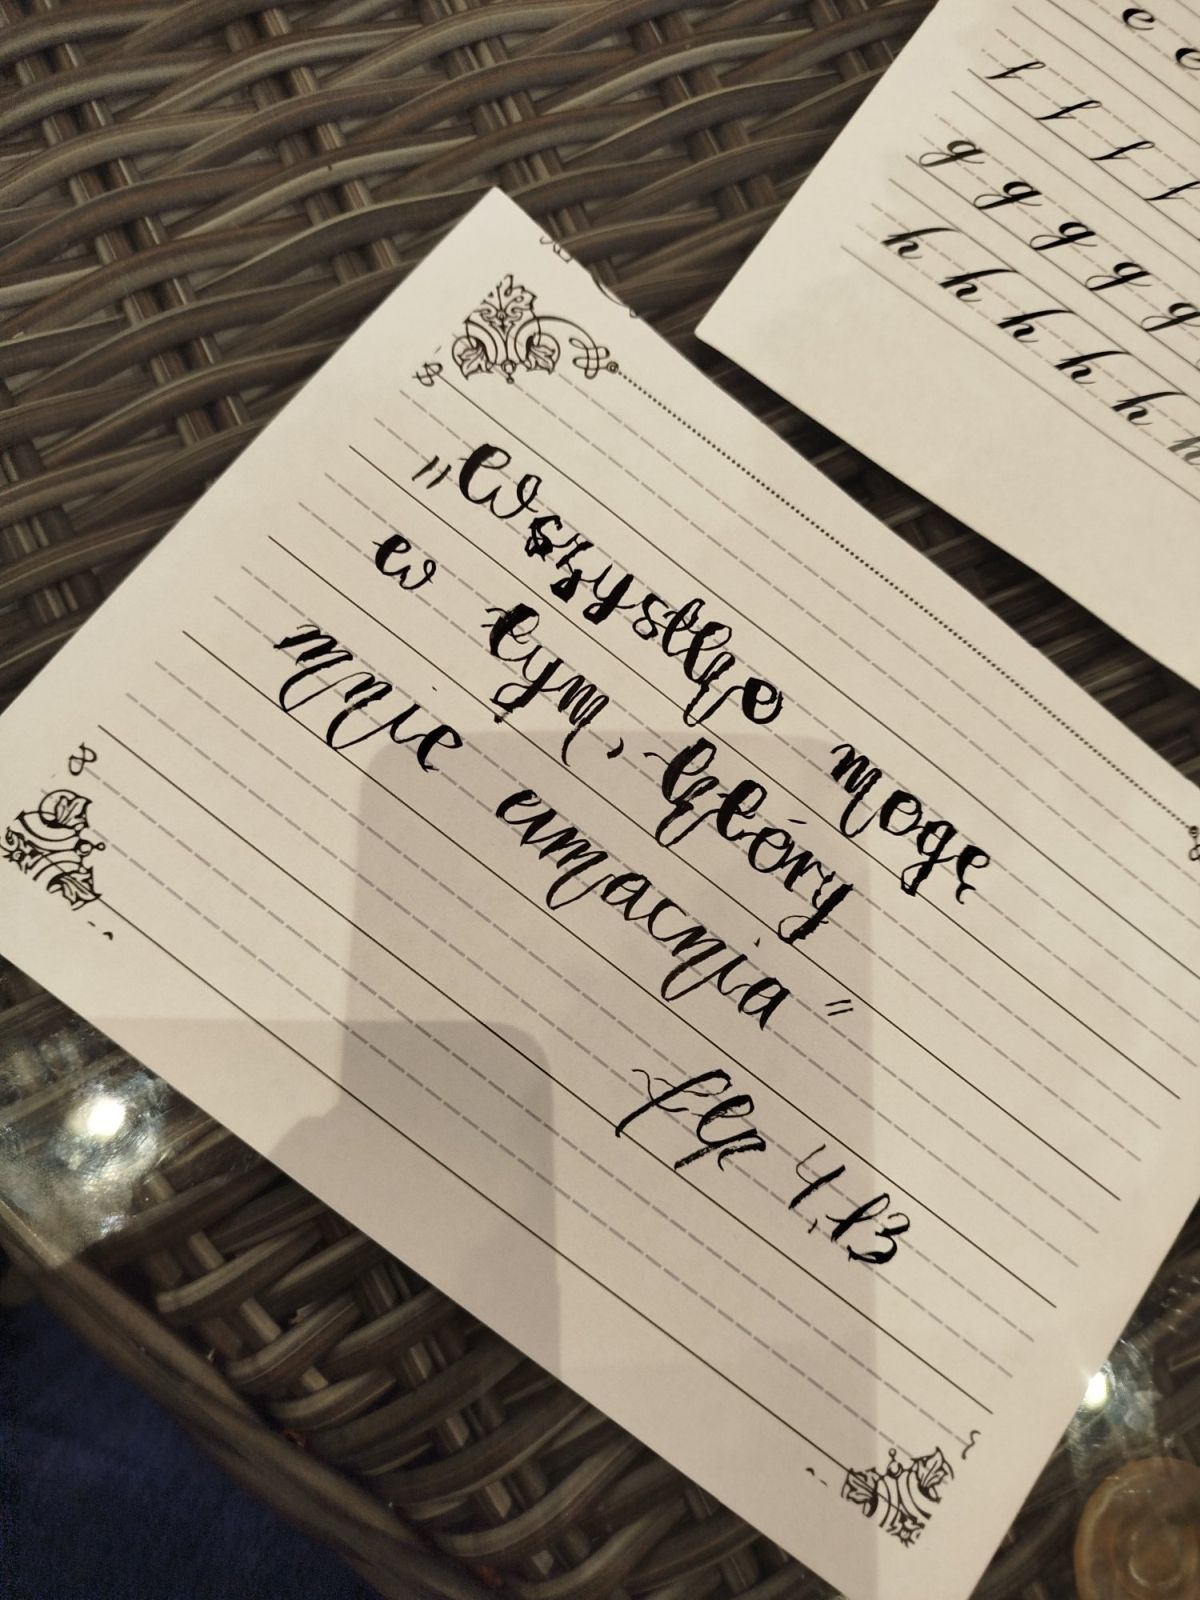 „Wszystko mogę
w tym, który
mnie umacnia"
flp 4,13
e e
f f f f
g g g g g
h h h h h h